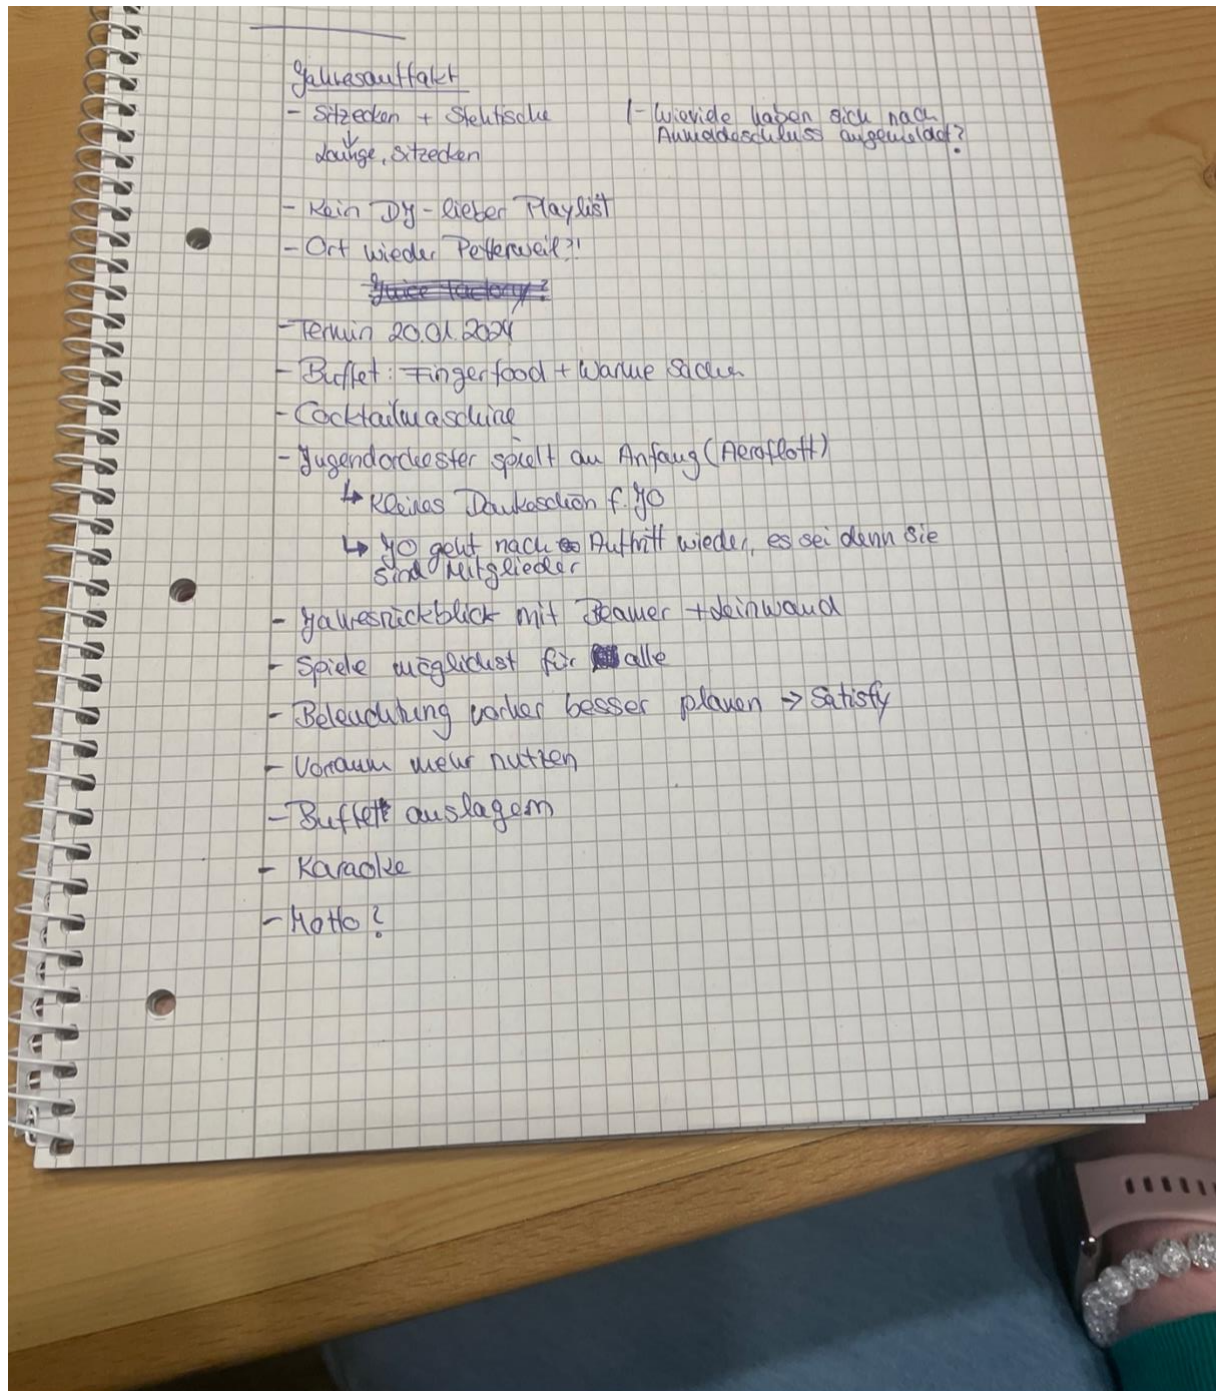 Jahresauftakt
- Sitzecken + Stehtische
↓
Lounge, Sitzecken
- Wieviele haben sich nach
Anmeldeschluss angemeldet?
- Kein DJ - lieber Playlist
- Ort wieder Petterweil?!
Juice factory?
- Termin 20.01.2024
- Buffet: Fingerfood + Warme Sachen
- Cocktailmaschine
- Jugendorchester spielt am Anfang (Aeroflott)
↳ kleines Dankeschön f. JO
↳ JO geht nach Auftritt wieder, es sei denn sie
sind Mitglieder
- Jahresrückblick mit Beamer + Leinwand
- Spiele möglichst für alle
- Beleuchtung vorher besser planen → Satisfy
- Vorraum mehr nutzen
- Buffett auslagern
- Karaoke
- Motto?